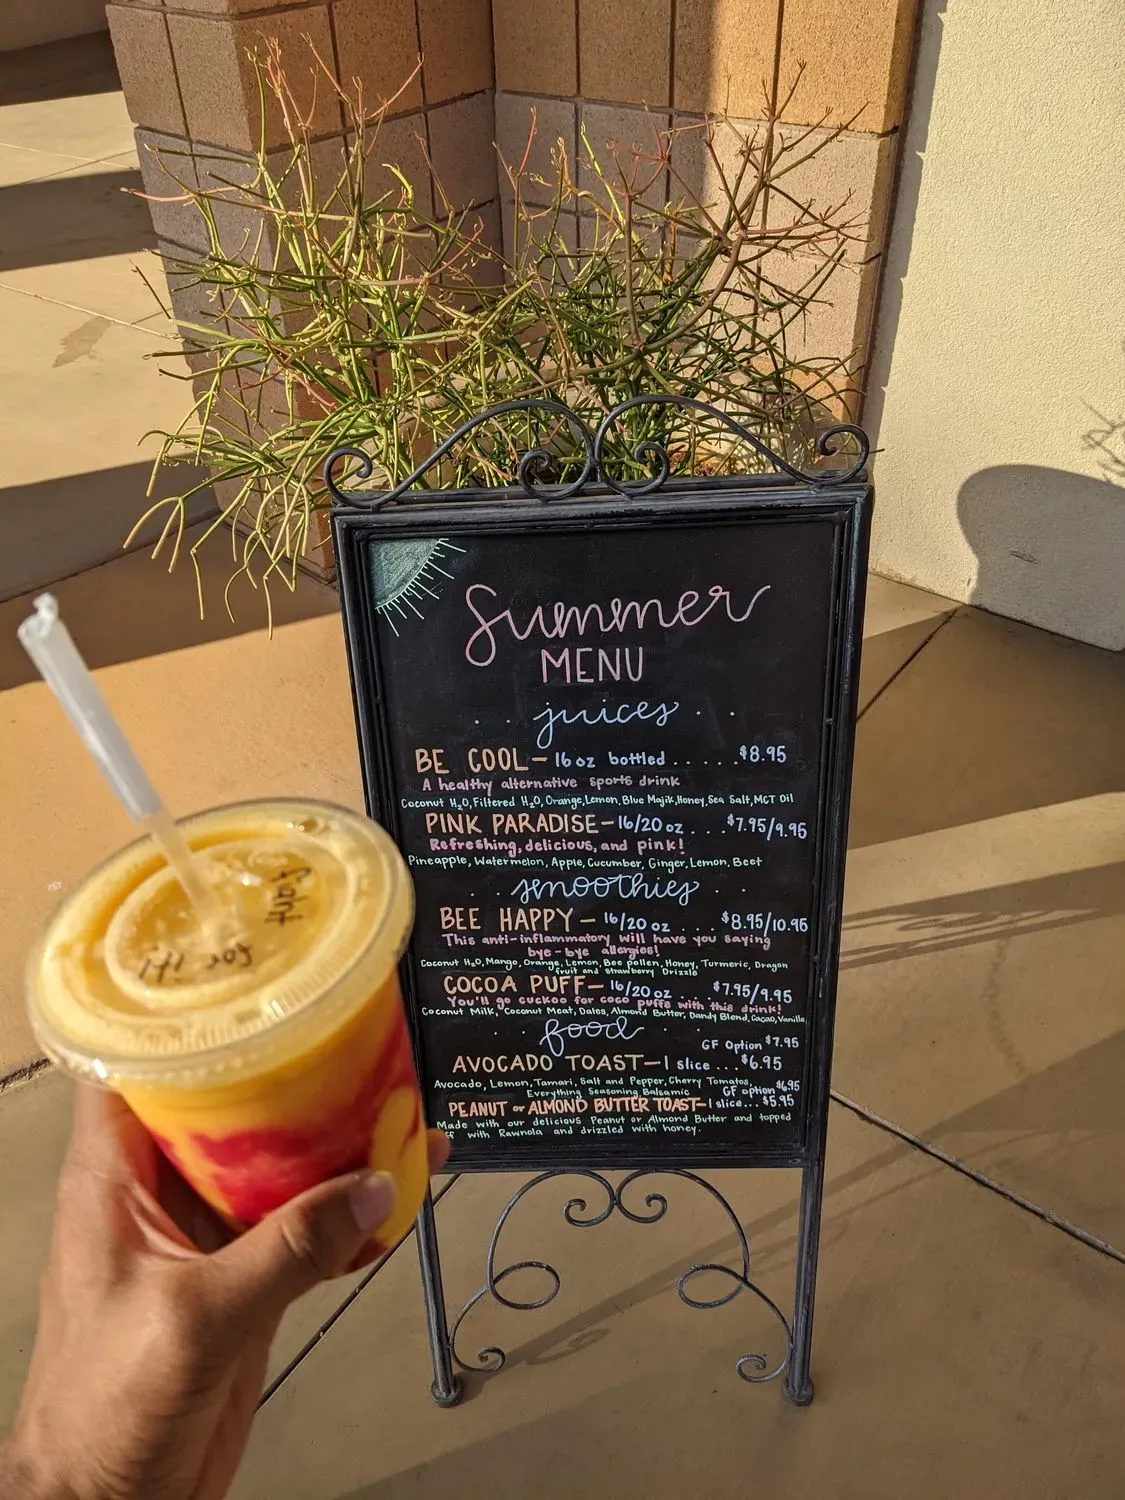 Summer
MENU
. . juices . .
BE COOL - 16 oz bottled . . . . . $8.95
A healthy alternative sports drink
Coconut H2O, Filtered H2O, Orange, Lemon, Blue Majik, Honey, Sea Salt, MCT Oil
PINK PARADISE - 16/20 oz . . . $7.95/9.95
Refreshing, delicious, and pink!
Pineapple, Watermelon, Apple, Cucumber, Ginger, Lemon, Beet
. . smoothies . .
BEE HAPPY - 16/20 oz . . . $8.95/10.95
This anti-inflammatory will have you saying
bye-bye allergies!
Coconut H2O, Mango, Orange, Lemon, Bee pollen, Honey, Turmeric, Dragon
fruit and Strawberry Drizzle
COCOA PUFF - 16/20 oz . . . . $7.95/9.95
You'll go cuckoo for coco puffs with this drink!
Coconut Milk, Coconut Meat, Dates, Almond Butter, Dandy Blend, Cacao, Vanilla
. . food . .
GF Option $7.95
AVOCADO TOAST - 1 slice ... $6.95
Avocado, Lemon, Tamari, Salt and Pepper, Cherry Tomatos,
Everything Seasoning Balsamic
GF option $6.95
PEANUT or ALMOND BUTTER TOAST - 1 slice... $5.95
Made with our delicious Peanut or Almond Butter and topped
with Rawnola and drizzled with honey.